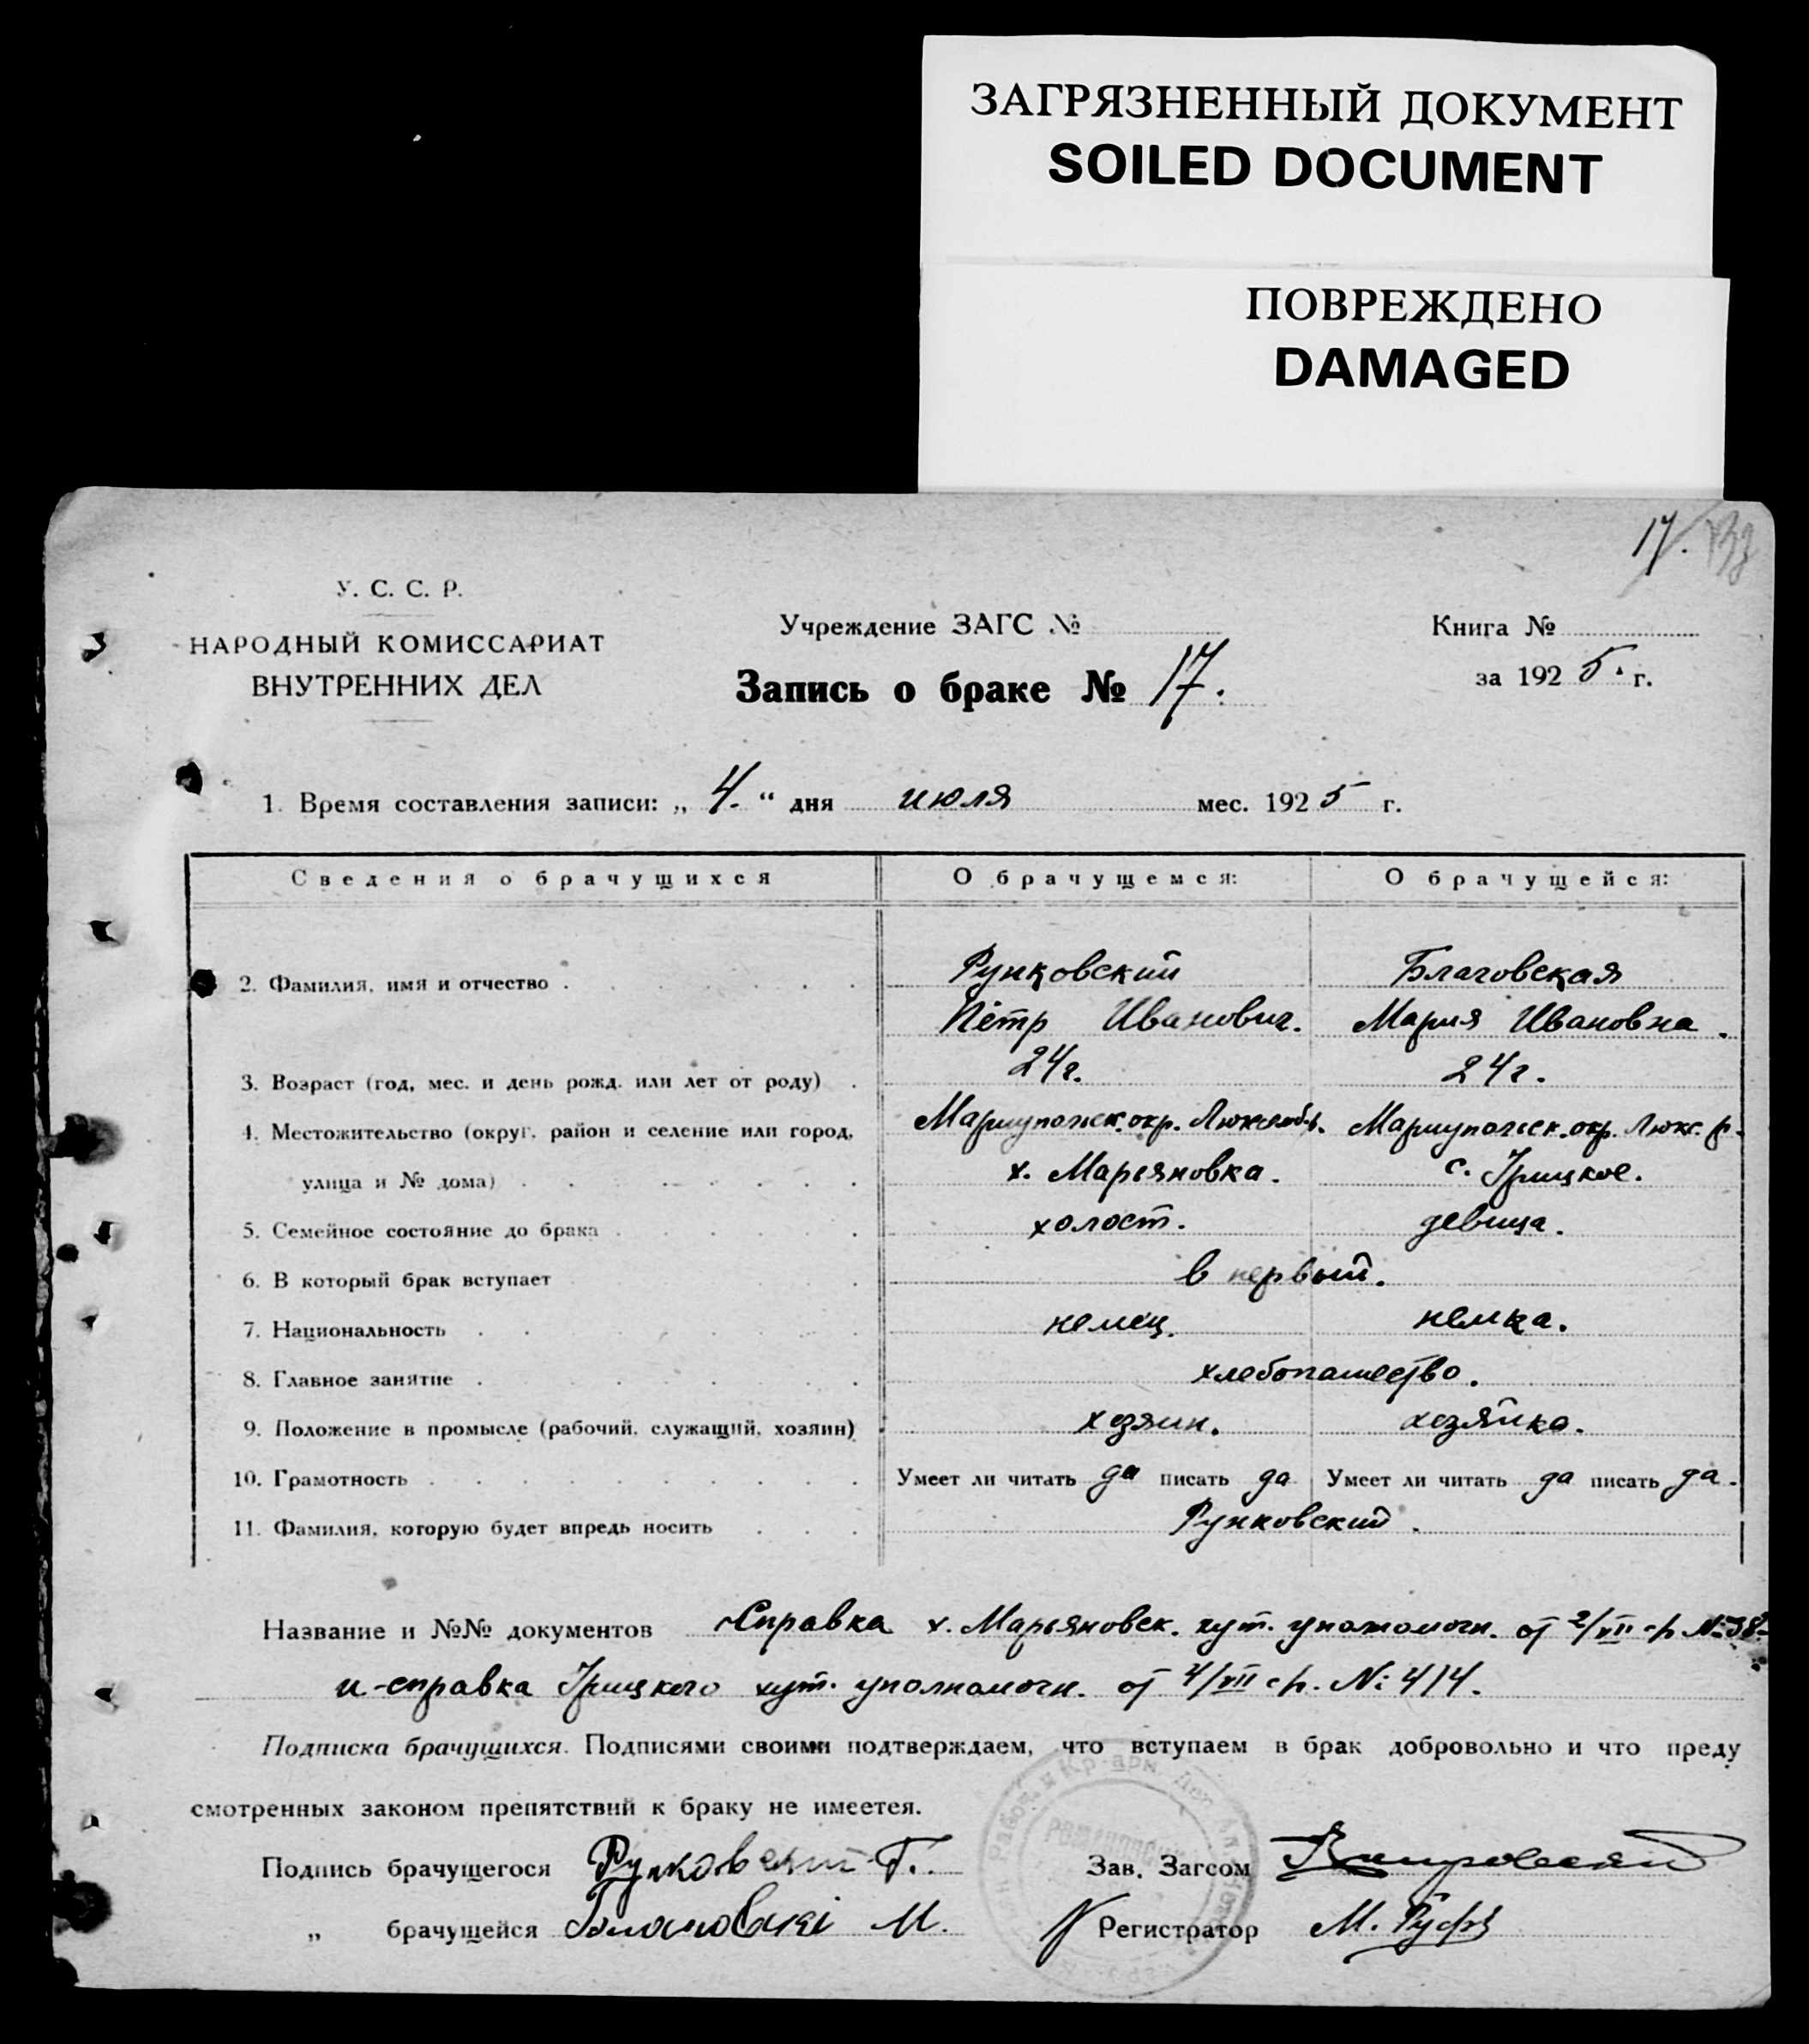 ЗАГРЯЗНЕННЫЙ ДОКУМЕНТ
SOILED DOCUMENT
ПОВРЕЖДЕНО
DAMAGED
17.
У. С. С. Р.
НАРОДНЫЙ КОМИССАРИАТ
ВНУТРЕННИХ ДЕЛ
Учреждение ЗАГС №
Запись о браке № 17.
Книга №
за 1925 г.
1. Время составления записи: „ 4. “ дня июля мес. 1925 г.
Сведения о брачущихся О брачущемся: О брачущейся:
2. Фамилия, имя и отчество Рунковский Благовская
Пётр Иванович. Мария Ивановна.
3. Возраст (год, мес. и день рожд. или лет от роду) 24 г. 24 г.
4. Местожительство (округ, район и селение или город, Мариупольск. окр. Люксемб. Мариупольск. окр. Люкс. р.
улица и № дома) х. Марьяновка. с. Грицкое.
5. Семейное состояние до брака холост. девица.
6. В который брак вступает в первый.
7. Национальность немец. немка.
8. Главное занятие хлебопашество.
9. Положение в промысле (рабочий, служащий, хозяин) хозяин. хозяйка.
10. Грамотность Умеет ли читать да писать да Умеет ли читать да писать да.
11. Фамилия, которую будет впредь носить Рунковский.
Название и №№ документов Справка х. Марьяновск. хут. уполномочн. от 2/VII с/г. № 38
и справка Грицкого хут. уполномочн. от 4/VII с/г. № 414.
Подписка брачущихся. Подписями своими подтверждаем, что вступаем в брак добровольно и что преду
смотренных законом препятствий к браку не имеется.
Подпись брачущегося Рунковский П. Зав. Загсом
„ брачущейся М. Регистратор М.